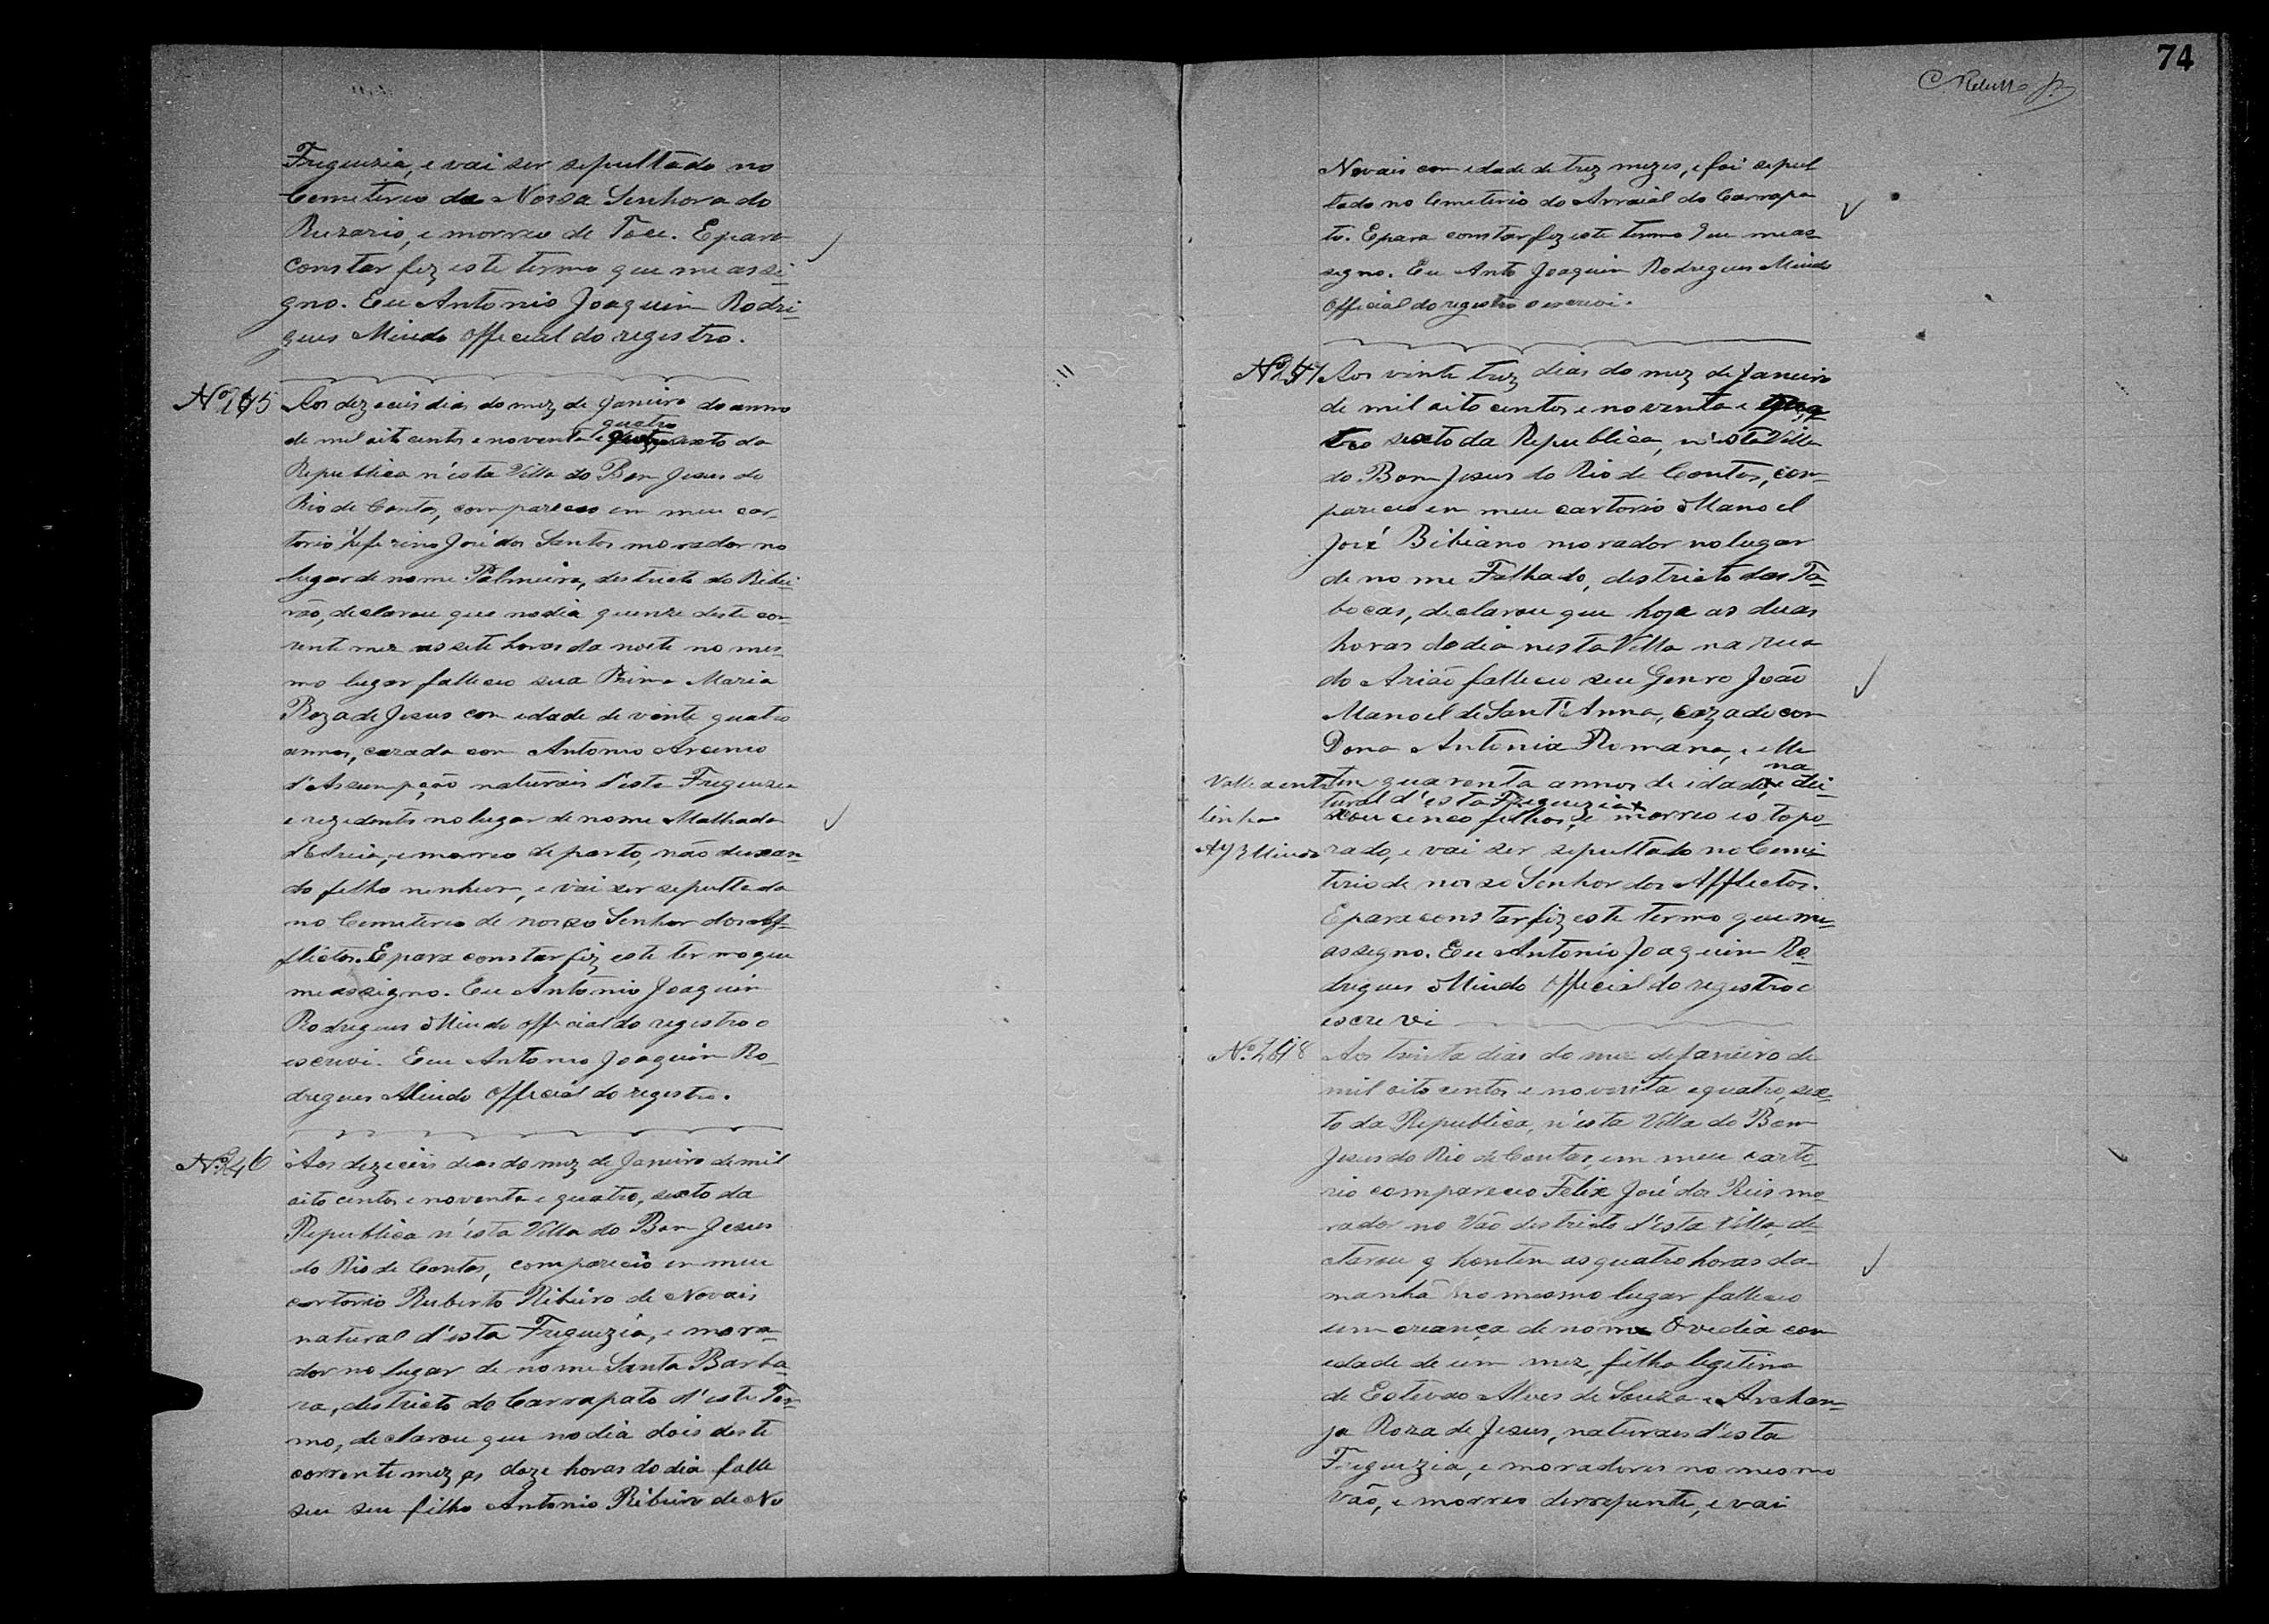 Freguezia, e vai ser sepultado no
Cemeterio da Nossa Senhora do
Ruzario, e morreu de Toce. Epara
constar fiz este termo que me assi-
gno. Eu Antonio Joaquim Rodri-
gues Miudo official do registro.
Nº 245 Aos dezaceis dias do mez de Janeiro do anno
de mil oito centos e noventa e quatro sexto da
Republica n'esta Villa do Bom Jesus do
Rio de Contas, compareceo em meu car-
torio Zeferino José dos Santos morador no
lugar de nome Palmeira, destricto do Ribei
rão, declarou que no dia quinze deste cor-
rente mez as sete horas da noite no mes-
mo lugar falleceo sua Prima Maria
Roza de Jesus com edade de vinte quatro
annos, cazada com Antonio Arcenio
d'Ascumpção naturais d'esta Freguezia
e rezedentes no lugar de nome Malhada
d'Areia, e morreo de parto, não deixan-
do filho nenhum, e vai ser sepultada
no Cemeterio de nosso Senhor dos Af-
flictos. E para constar fiz este termo que
me assigno. Eu Antonio Joaquim
Rodrigues Miudo official do registro o
escrevi. Eu Antonio Joaquim Ro-
drigues Miudo official do registro.
Nº 246 Aos dezeceis dias do mez de Janeiro de mil
oito centos e noventa e quatro, sexto da
Republica n'esta Villa do Bom Jesus
do Rio de Contas, compareceo em meu
cartorio Ruberto Ribeiro de Novais
natural d'esta Freguezia, e mora-
dor no lugar de nome Santa Barba-
ra, destricto do Carrapato d'este Ter-
mo, declarou que no dia dois deste
corrente mez as doze horas do dia falle
seu seu filho Antonio Ribeiro de No
74
Novais com edade de trez mezes, e foi sepul
tado no Cemeterio do Arraial do Carrapa
to. Epara constar fiz este termo que me as-
segno. Eu Anto Joaquim Rodrigues Miudo
Official do registro o escrevi.
Nº 247 Aos vinte trez dias do mez de Janeiro
de mil oito centos e noventa e qua
tro sexto da Republica, n'esta Villa
do Bom Jesus do Rio de Contas, com-
pareceo em meu cartorio Manoel
José Bibiano morador no lugar
de nome Falhado, destricto das Ta-
bocas, declarou que hoje as duas
horas do dia nesta Villa na rua
do Arião falleceu seu Genro João
Manoel de Sant'Anna, cazado com
Dona Antonia Romana, e elle
tem quarenta annos de idade, na
tural d'esta Freguezia e dei-
Valle a entre
linha
AJRMiudo
xou cinco filhos, e morreo estopo-
rado, e vai ser sepultado no Ceme-
terio de nosso Senhor dos Afflictos.
Epara constar fiz este termo que me-
assegno. Eu Antonio Joaquim Ro-
drigues Miudo official do registro o
escrevi
Nº 248 Aos trinta dias do mez de Janeiro de
mil oito centos e noventa e quatro, sex-
to da Republica, n'esta Villa do Bom
Jesus do Rio de Contas, em meu carto-
rio compareceo Felix José dos Reis mo-
rador no Vão destricto d'esta Villa, de-
clarou q hontem as quatro horas da
manhã no mesmo lugar falleceo
um creança de nome Ovedia com
edade de um mez, filha legitima
de Estevão Alves de Souza e Archan-
ja Roza de Jesus, naturais d'esta
Freguezia, e moradores no mesmo
Vão, e morreo derrepente, e vai